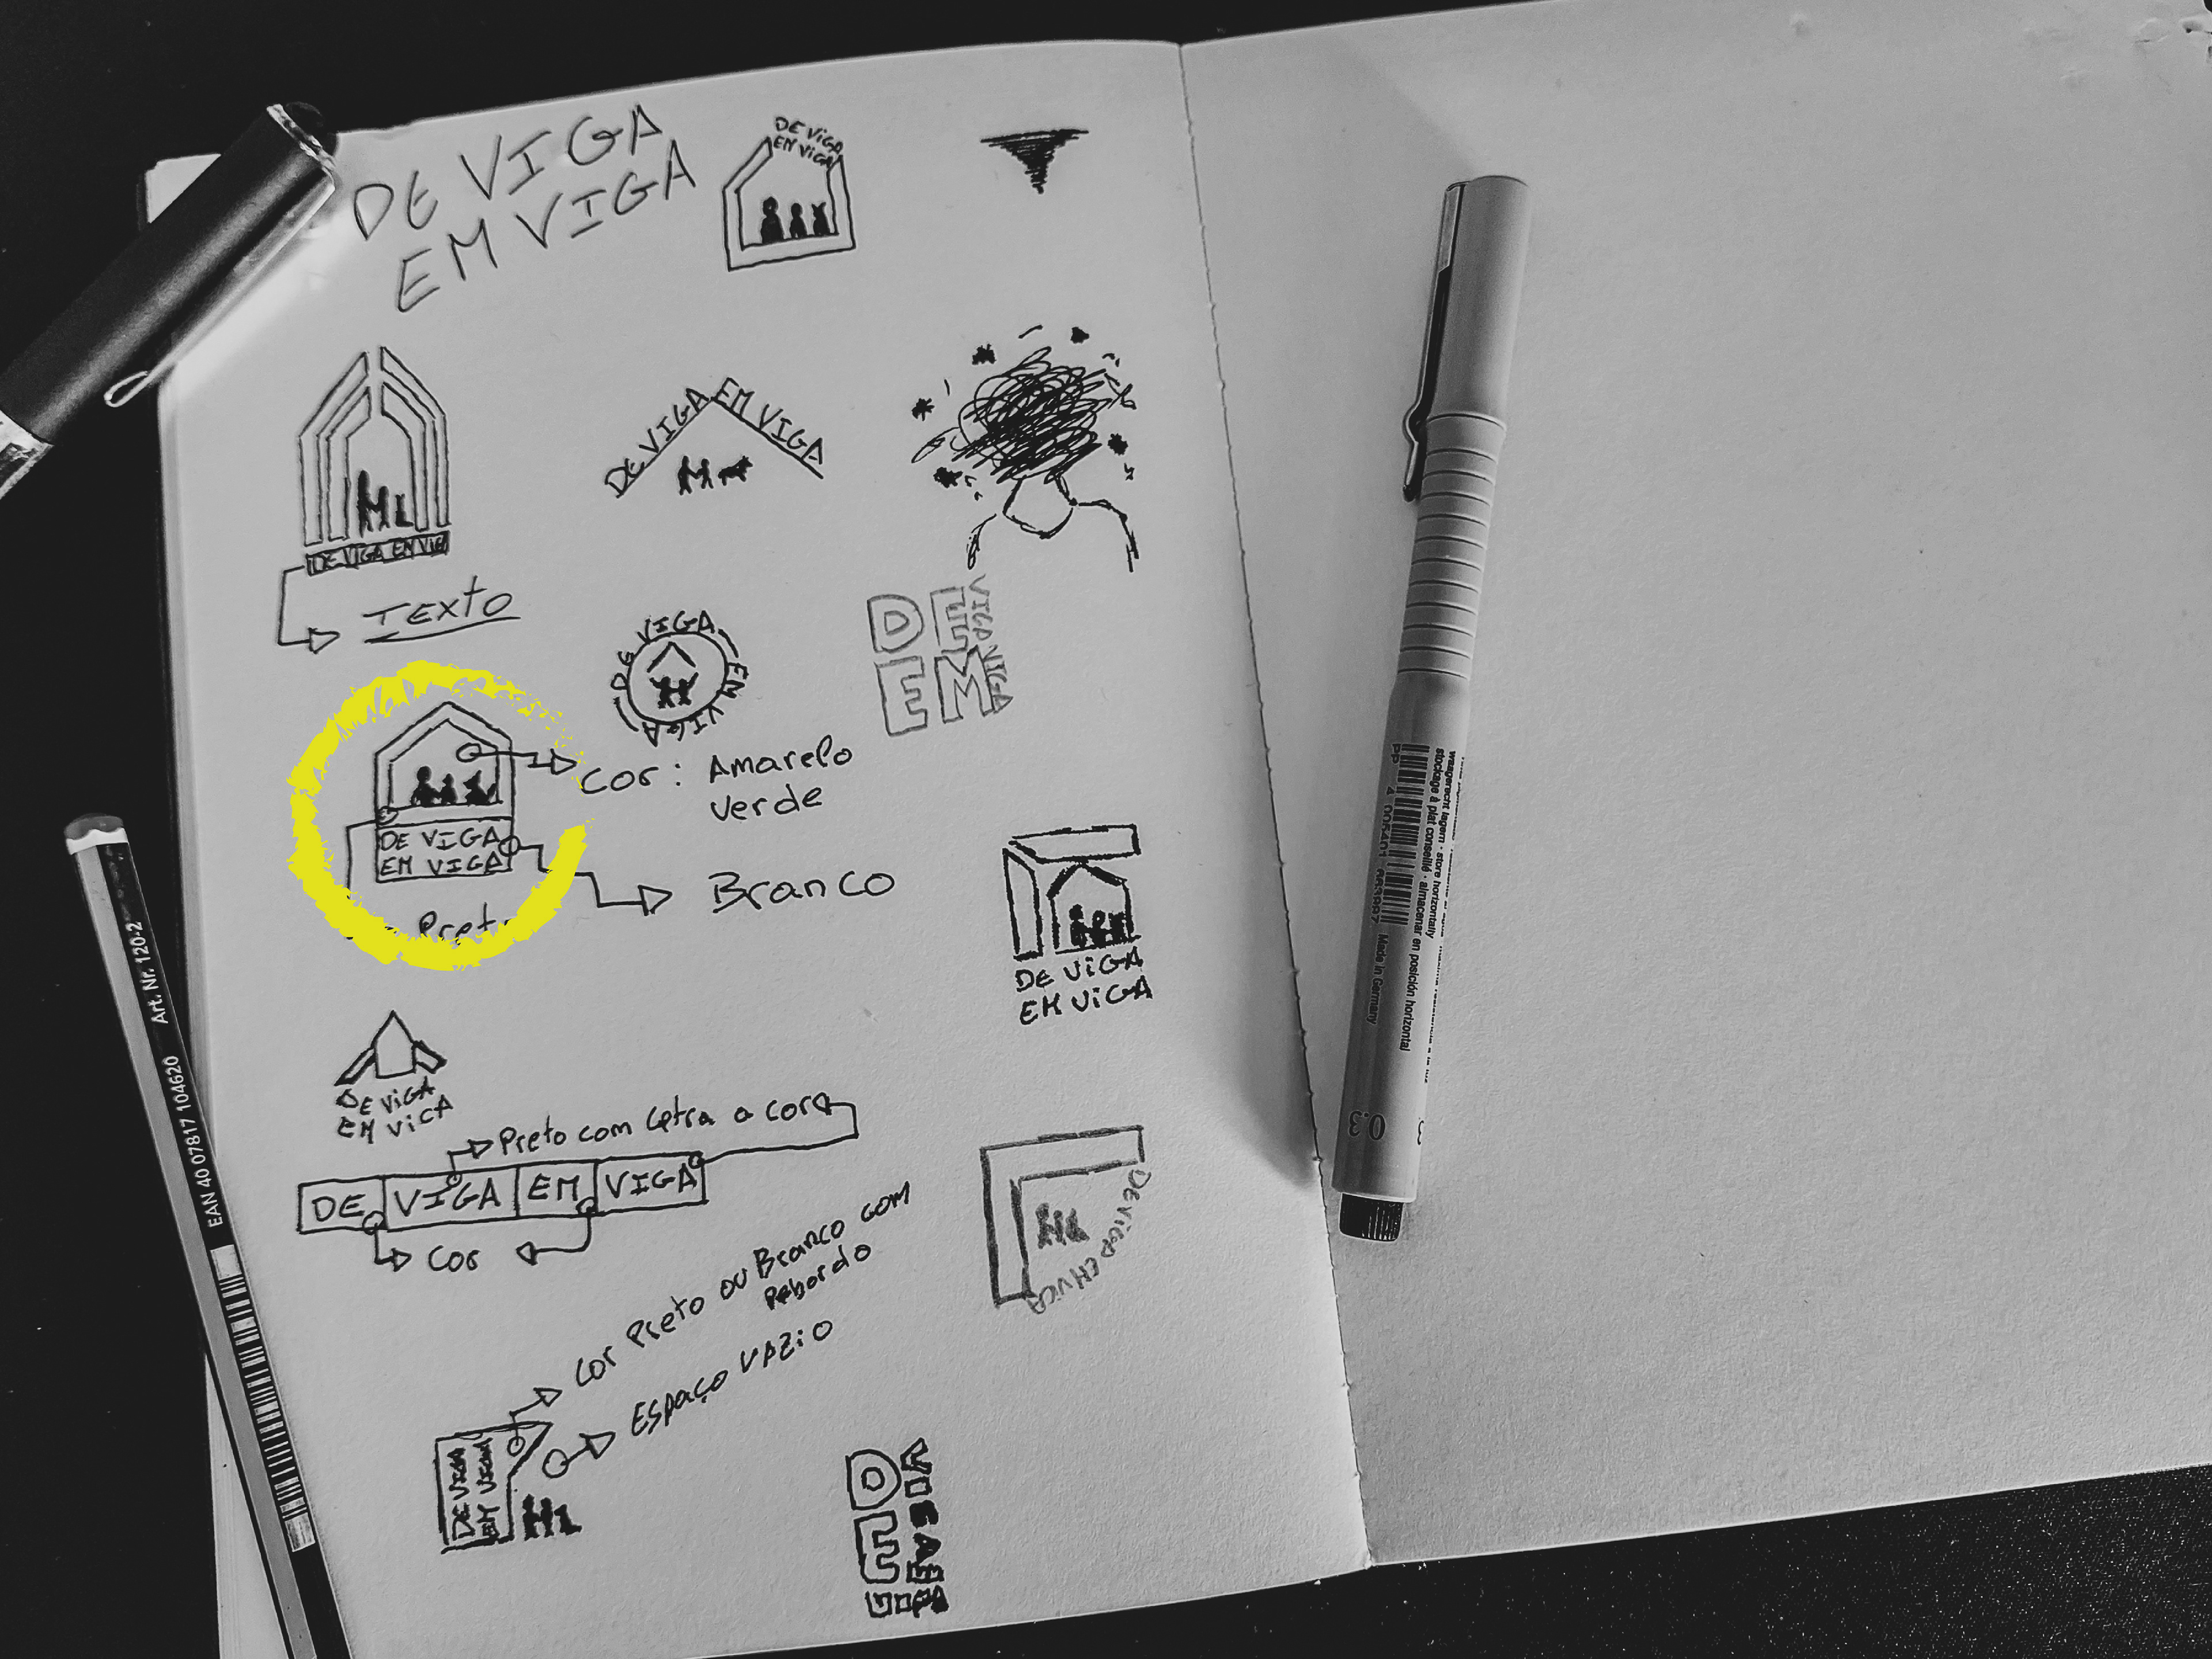 DE VIGA
EM VIGA
DE VIGA
EM VIGA
DE VIGA EM VIGA
DE VIGA EM
TEXTO
DE VIGA EM VIGA
DE VIGA
EM VIGA
COR: AMARELO
VERDE
DE VIGA
EM VIGA
BRANCO
PRETO
DE VIGA
EM VIGA
DE VIGA
EM VIGA
PRETO COM LETRA A COR
DE VIGA EM VIGA
COR
DE VIGA EM VIGA
COR PRETO OU BRANCO COM
REBORDO
ESPAÇO VAZIO
DE VIGA
EM VIGA
DE
Art. Nr. 120-2
EAN 40 07817 104620
waagerecht lagern · store horizontally
stockage à plat conseillé · almacenar en posición horizontal
PP
Made in Germany
0.3